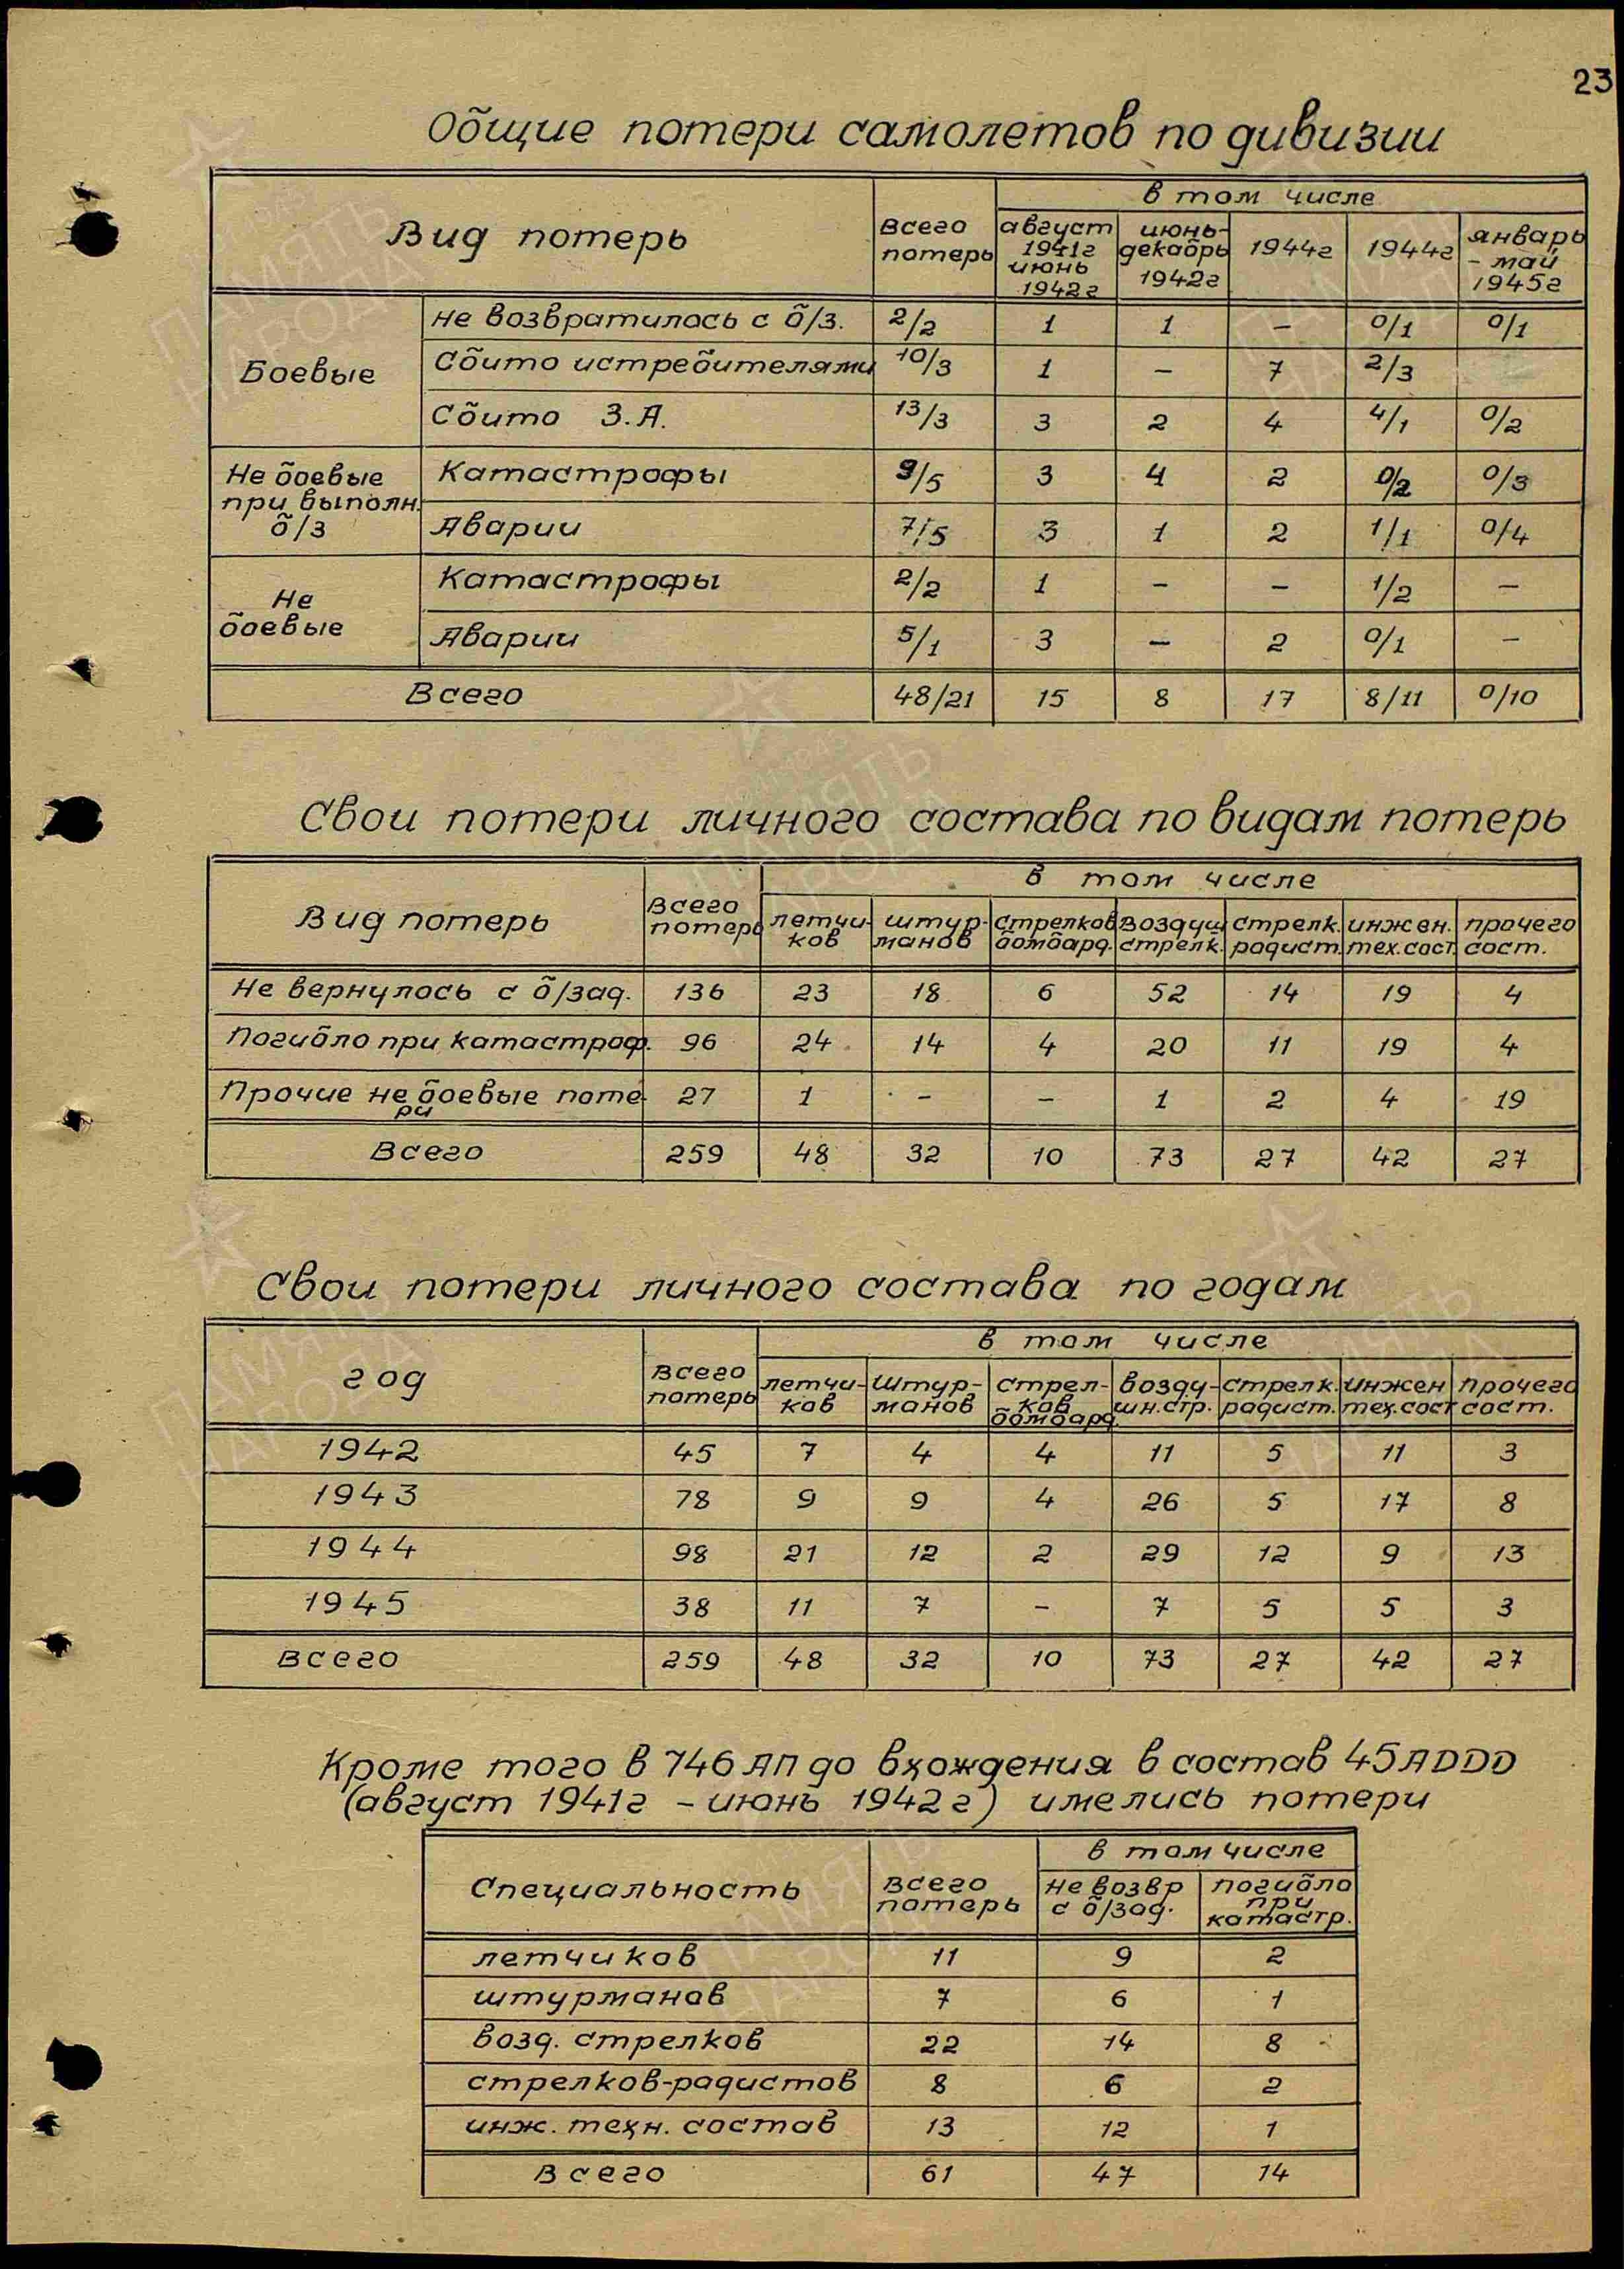 23
Общие потери самолетов по дивизии
Вид потерь всего потерь в том числе
август 1941г июнь 1942г июнь-декабрь 1942г 1944г 1944г январь - май 1945г
Боевые не возвратилось с б/з. 2/2 1 1 – 0/1 0/1
Сбито истребителями 10/3 1 – 7 2/3
Сбито З.А. 13/3 3 2 4 4/1 0/2
Не боевые при выполн. б/з Катастрофы 9/5 3 4 2 0/2 0/3
Аварии 7/5 3 1 2 1/1 0/4
Не боевые Катастрофы 2/2 1 – – 1/2 –
Аварии 5/1 3 – 2 0/1 –
Всего 48/21 15 8 17 8/11 0/10
Свои потери личного состава по видам потерь
Вид потерь всего потерь в том числе
летчи-ков штур-манов стрелков бомбард. воздуш стрелк. стрелк. радист. инжен. тех.сост. прочего сост.
Не вернулось с б/зад. 136 23 18 6 52 14 19 4
Погибло при катастроф. 96 24 14 4 20 11 19 4
Прочие не боевые поте-ри 27 1 – – 1 2 4 19
Всего 259 48 32 10 73 27 42 27
Свои потери личного состава по годам
год всего потерь в том числе
летчи-ков штур-манов стрел-ков бомбард. возду-шн.стр. стрелк. радист. инжен тех.сост прочего сост.
1942 45 7 4 4 11 5 11 3
1943 78 9 9 4 26 5 17 8
1944 98 21 12 2 29 12 9 13
1945 38 11 7 – 7 5 5 3
всего 259 48 32 10 73 27 42 27
Кроме того в 746 АП до вхождения в состав 45АДДД
(август 1941г – июнь 1942г) имелись потери
Специальность всего потерь в том числе
не возвр с б/зад. погибло при катастр.
летчиков 11 9 2
штурманов 7 6 1
возд. стрелков 22 14 8
стрелков-радистов 8 6 2
инж. техн. состав 13 12 1
Всего 61 47 14
ПАМЯТЬ НАРОДА